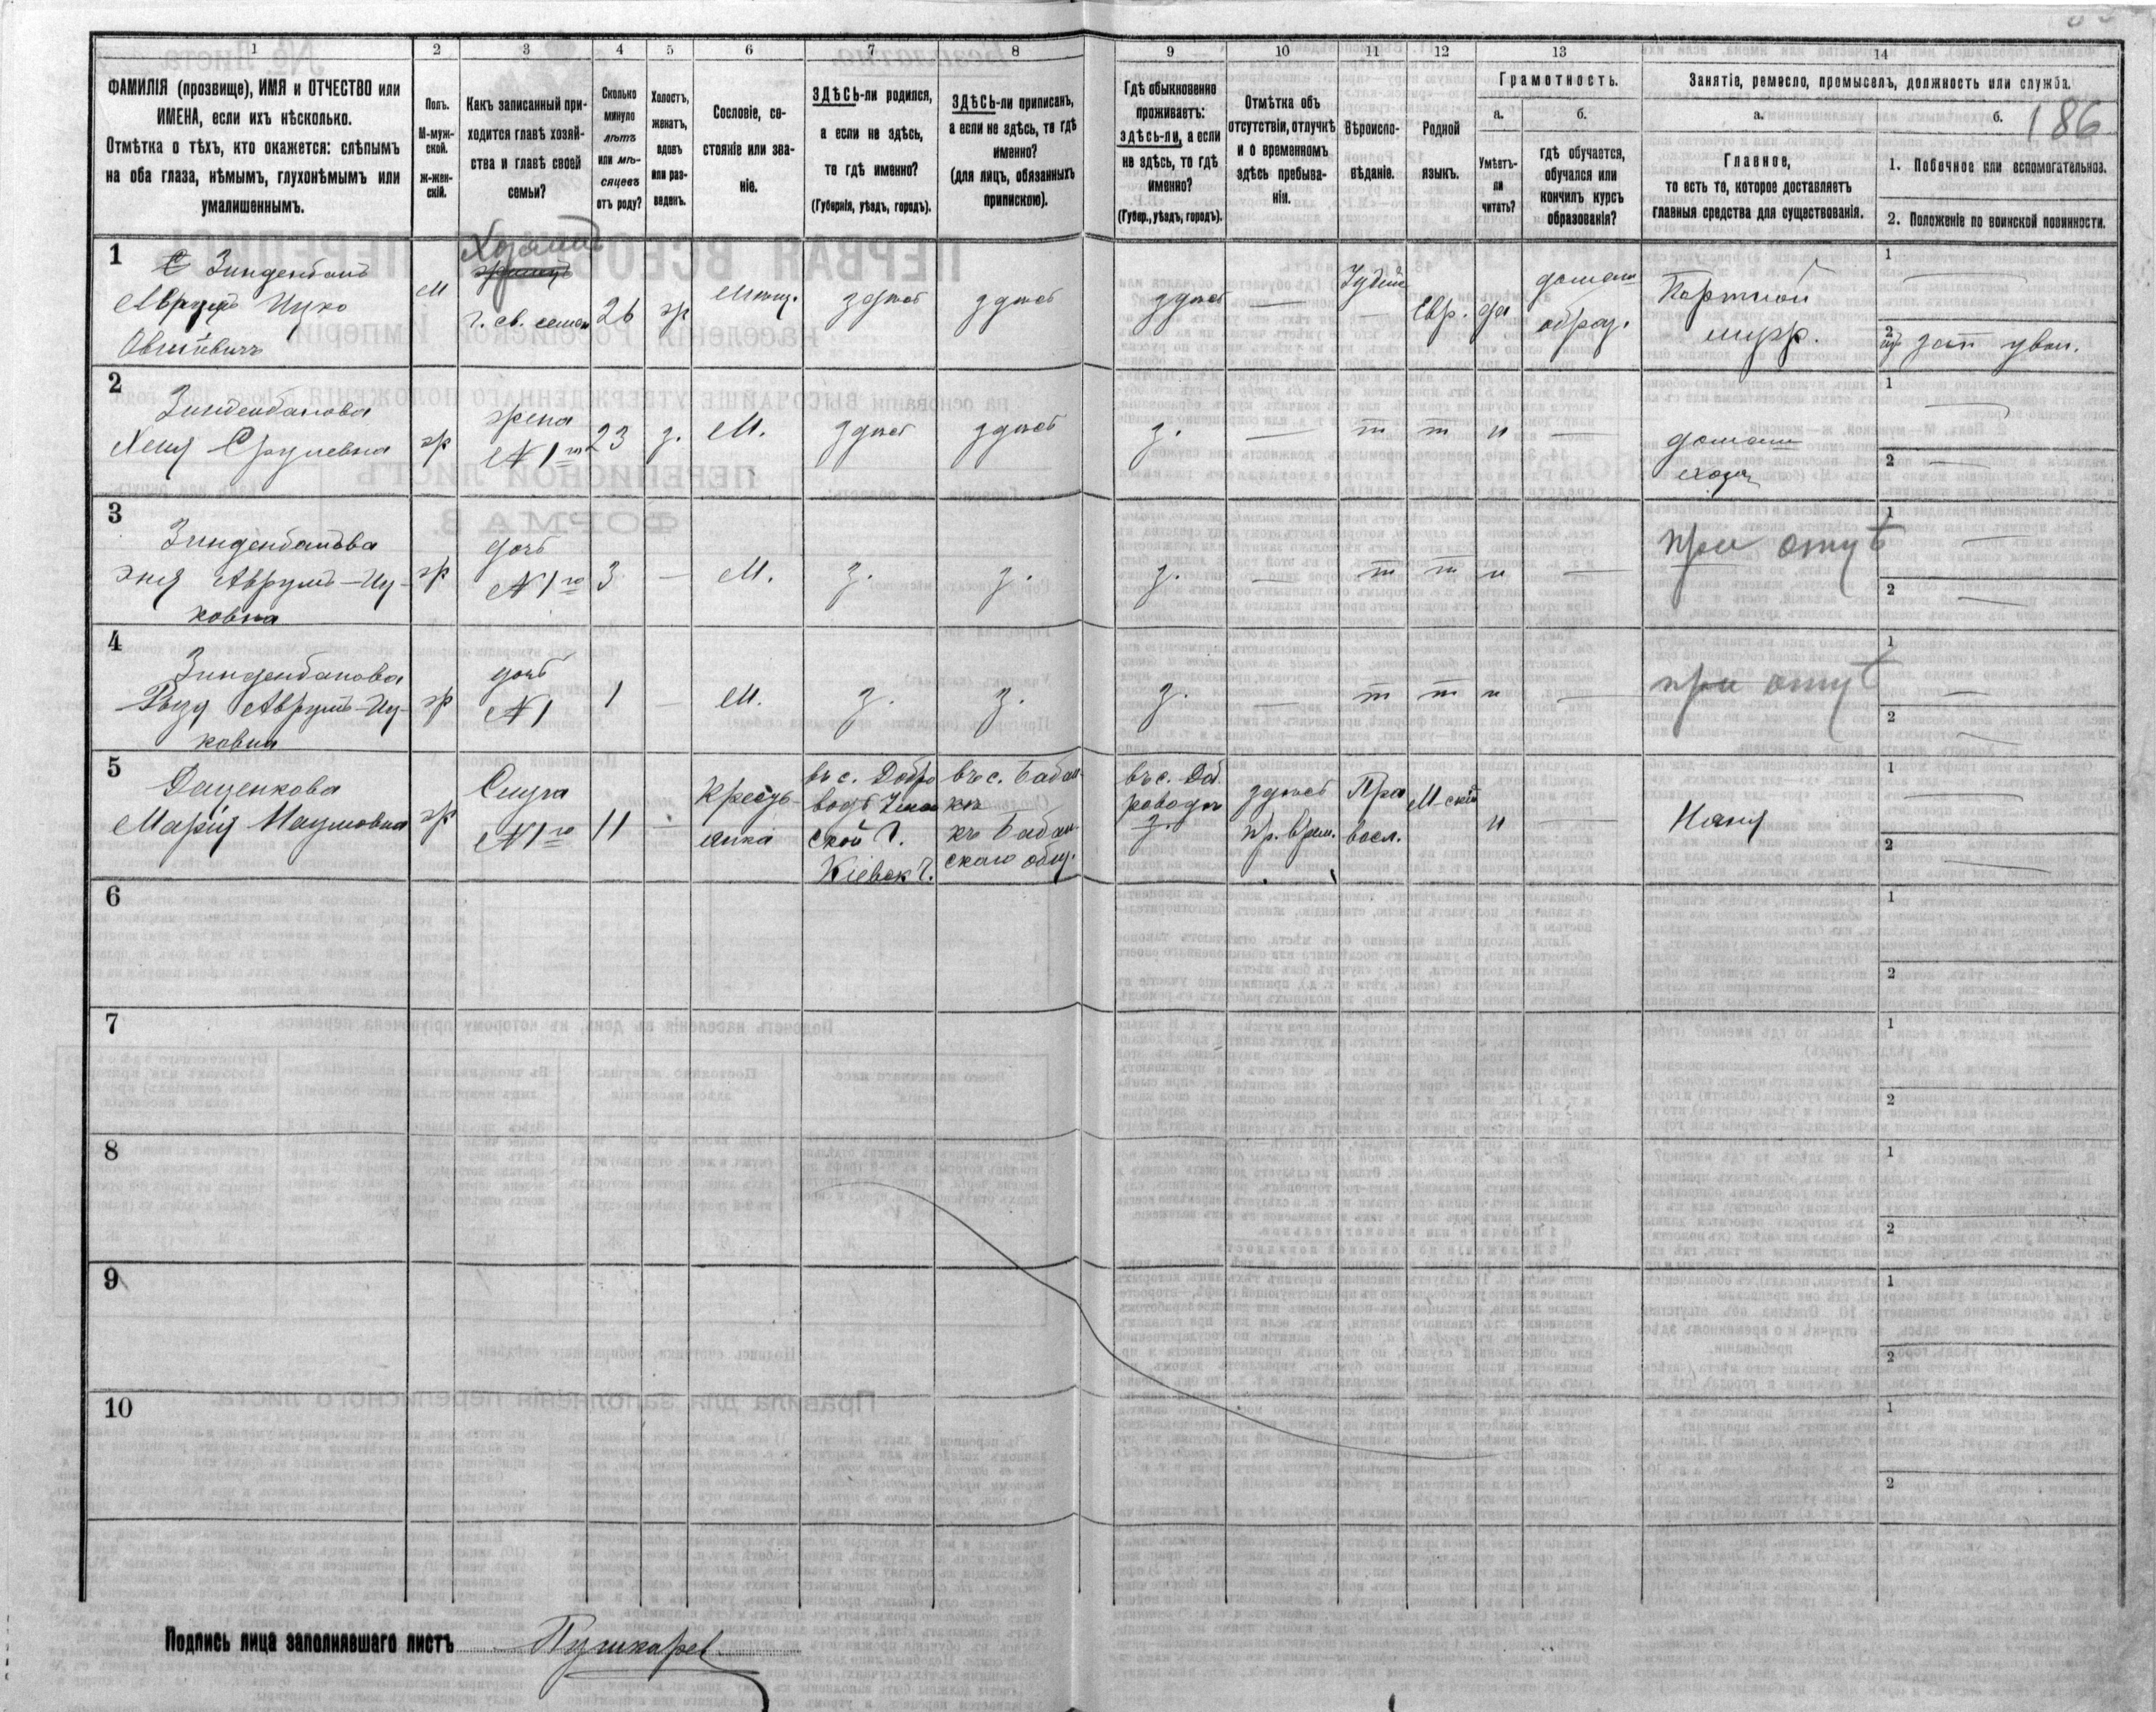 186
1
2
3
4
5
6
7
8
9
10
11
12
13
14
ФАМИЛІЯ (прозвище), ИМЯ и ОТЧЕСТВО или
ИМЕНА, если ихъ нѣсколько.
Отмѣтка о тѣхъ, кто окажется: слѣпымъ
на оба глаза, нѣмымъ, глухонѣмымъ или
умалишеннымъ.
Полъ.
М-муж-
ской.
ж-жен-
скій.
Какъ записанный при-
ходится главѣ хозяй-
ства и главѣ своей
семьи?
Сколько
минуло
лѣтъ
или мѣ-
сяцевъ
отъ роду?
Холостъ,
женатъ,
вдовъ
или раз-
веденъ.
Сословіе, со-
стояніе или зва-
ніе.
ЗДѢСЬ-ли родился,
а если не здѣсь,
то гдѣ именно?
(Губернія, уѣздъ, городъ).
ЗДѢСЬ-ли приписанъ,
а если не здѣсь, то гдѣ
именно?
(для лицъ, обязанныхъ
припискою).
Гдѣ обыкновенно
проживаетъ:
здѣсь-ли, а если
не здѣсь, то гдѣ
именно?
(Губер., уѣздъ, городъ).
Отмѣтка объ
отсутствіи, отлучкѣ
и о временномъ
здѣсь пребыва-
ніи.
Вѣроиспо-
вѣданіе.
Родной
языкъ.
Грамотность.
а.
Умѣетъ-
ли
читать?
б.
гдѣ обучается,
обучался или
кончилъ курсъ
образованія?
Занятіе, ремесло, промыселъ, должность или служба.
а.
Главное,
то есть то, которое доставляетъ
главныя средства для существованія.
б.
1. Побочное или вспомогательное.
2. Положеніе по воинской повинности.
1
Зинденбаумъ
Аврумъ Ицко
М
Хозяинъ
г. св. семьи
26
ж
Мѣщ.
здѣсь
здѣсь
здѣсь
—
Іудей
Евр.
да
домаш
образ.
Портной
1
—
2
2
Зинденбаумова
Хеня Сруловна
ж
жена
№ 1го
23
з.
М.
здѣсь
здѣсь
з.
—
т
т
н
—
домаш
хозя
1
—
2
—
3
Зинденбаумова
Эня Аврумъ-Иц-
ковна
ж
дочь
№ 1го
3
—
М.
з.
з.
з.
—
т
т
н
—
при отцѣ
1
—
2
—
4
Зинденбаумова
Аврумъ-Иц-
ковна
ж
дочь
№ 1
1
—
М.
з.
з.
з.
—
т
т
н
—
при отцѣ
1
—
2
—
5
Даценкова
Марія Наумовна
ж
Слуга
№ 1го
11
—
Кресть-
янка
въ с. Добро
водъ
ской
Кіевск. г.
въ с. Бабан-
кѣ
къ Бабан-
скаго общ.
въ с. Доб.
роводъ
з.
здѣсь
пр. врем.
Пра
восл.
М-ской
н
—
Няня
1
—
2
—
6
1
2
7
1
2
8
1
2
9
1
2
10
1
2
Подпись лица заполнявшаго листъ Пушкаревъ